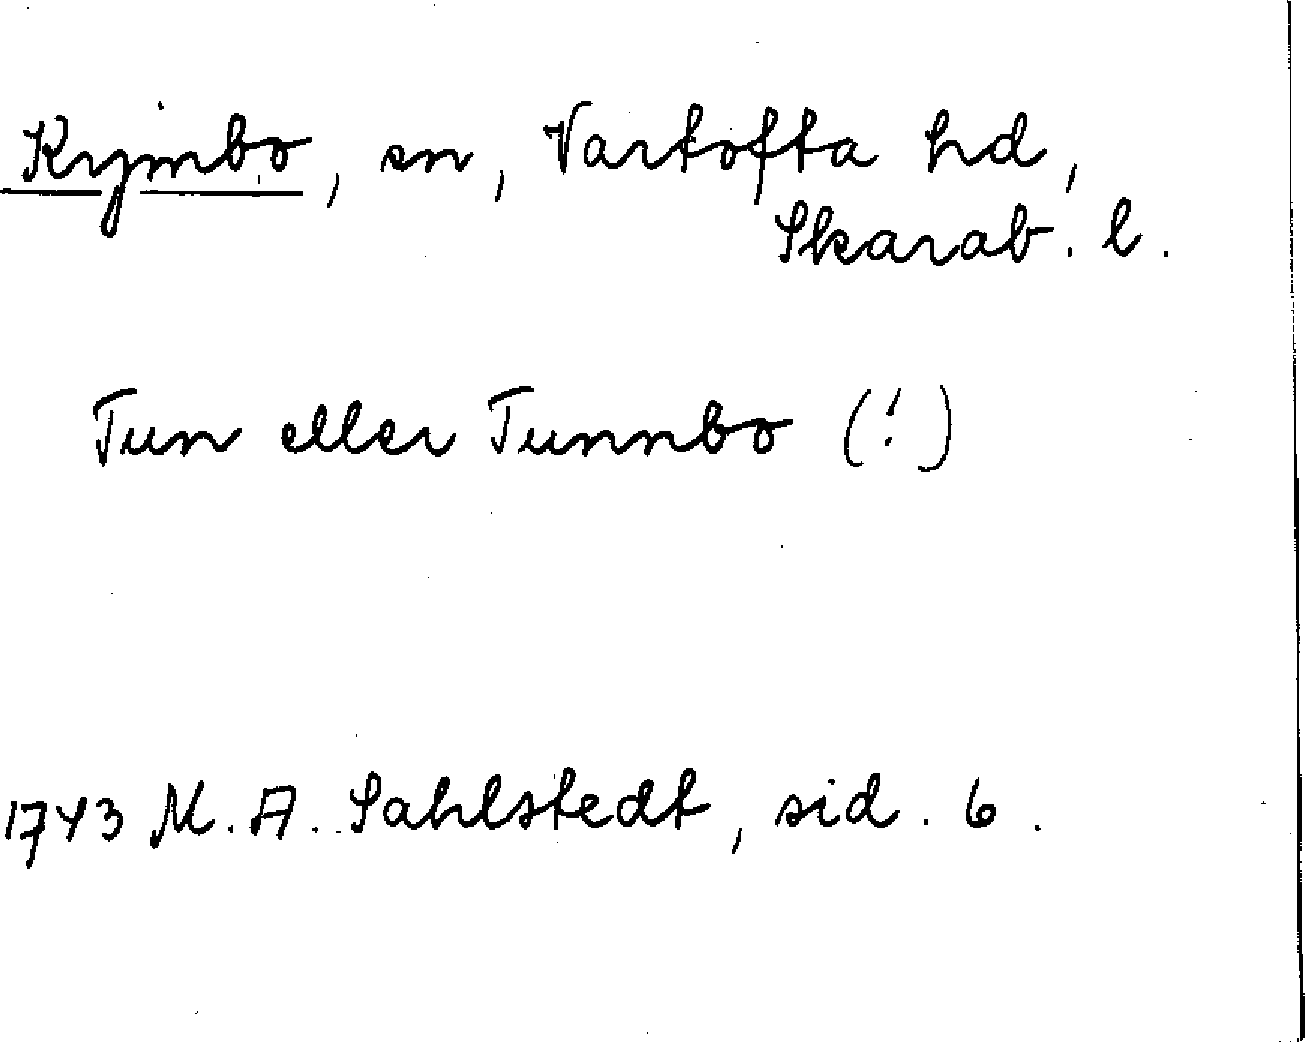 Kymbo, sn, Vartofta hd,
Skarab. l.
Tun eller Tunnbo (!)
1743 M. A. Sahlstedt, sid. 6.